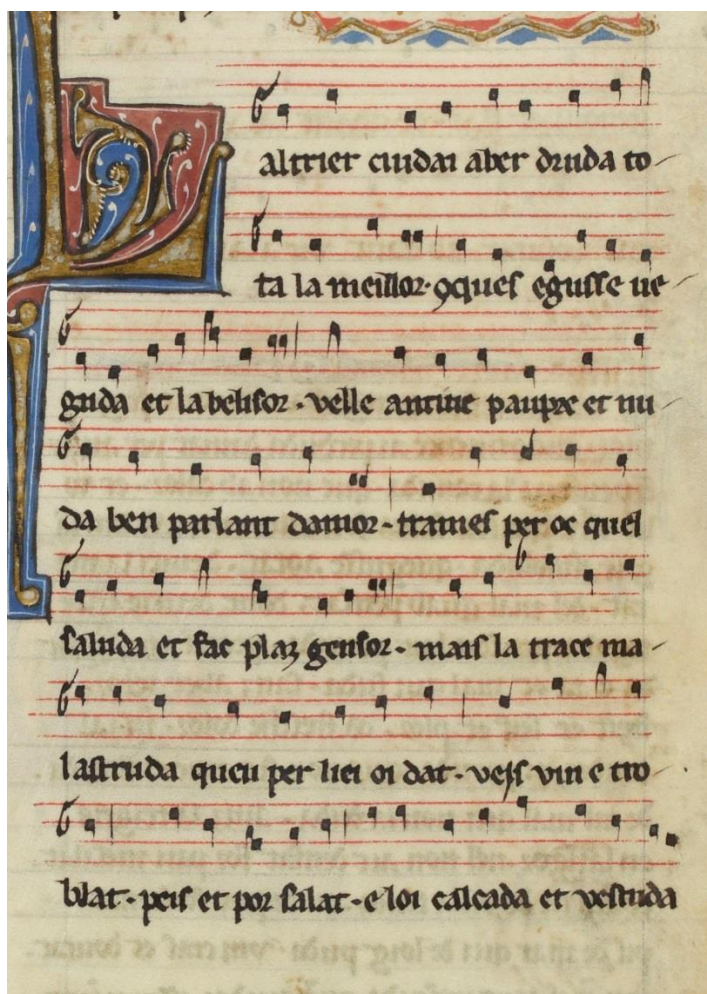 L altrier cuidai aber druda to
ta la meillor· ꝯques egusse ue
guda et la belisor· velle antiue paupre et nu
da ben parlant damor· trames per oc quel
saluda et fac plaz gensor· mais la trace ma
lastruda queu per liei oi dat· vejs vin e tro
blat· peis et por salat· e loi calcada et vestuda